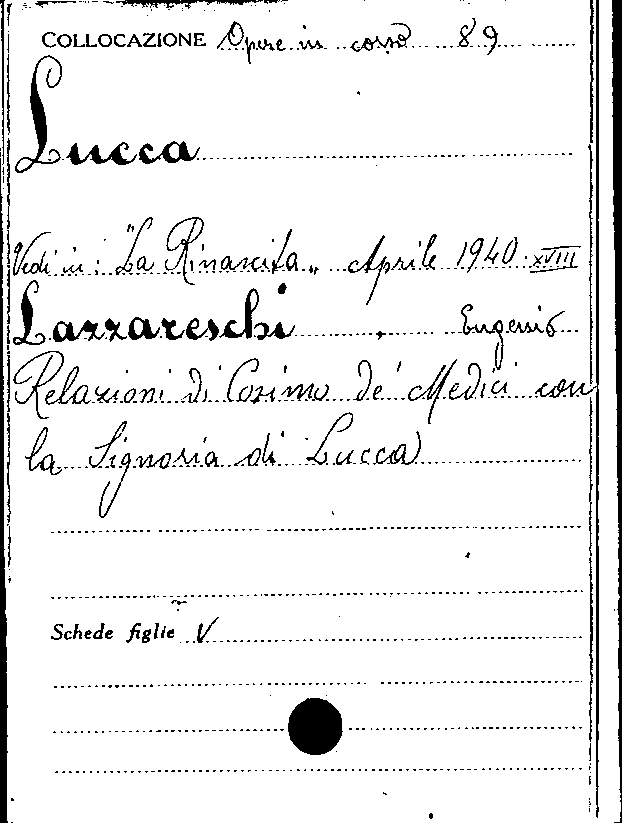 COLLOCAZIONE Opere in corso 89
Lucca
Vedi in: "La Rinascita„ Aprile 1940. XVIII
Lazzareschi, Eugenio
Relazioni di Cosimo de' Medici con
la Signoria di Lucca
Schede figlie V